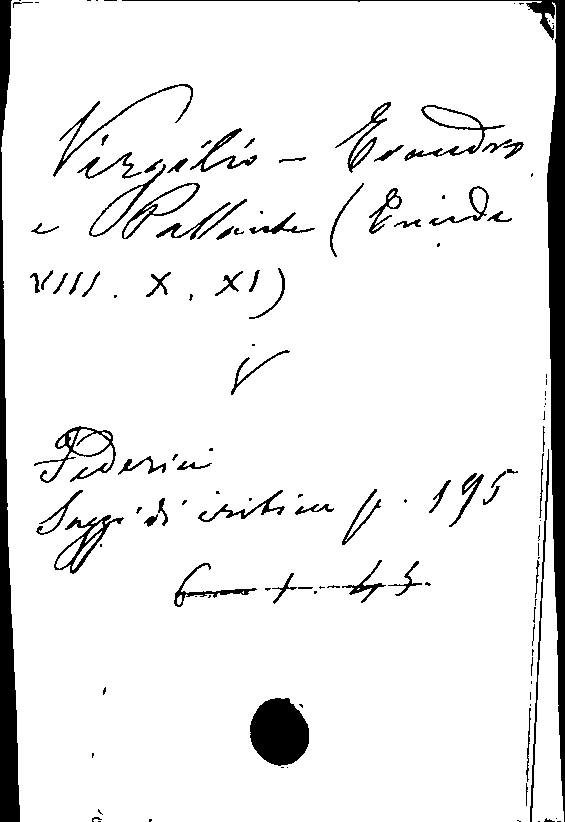 Virgilio – Evandro
e Pallante (Eneide
VIII. X. XI)
v
Federici
Saggi di critica p. 195
6 1. 45.